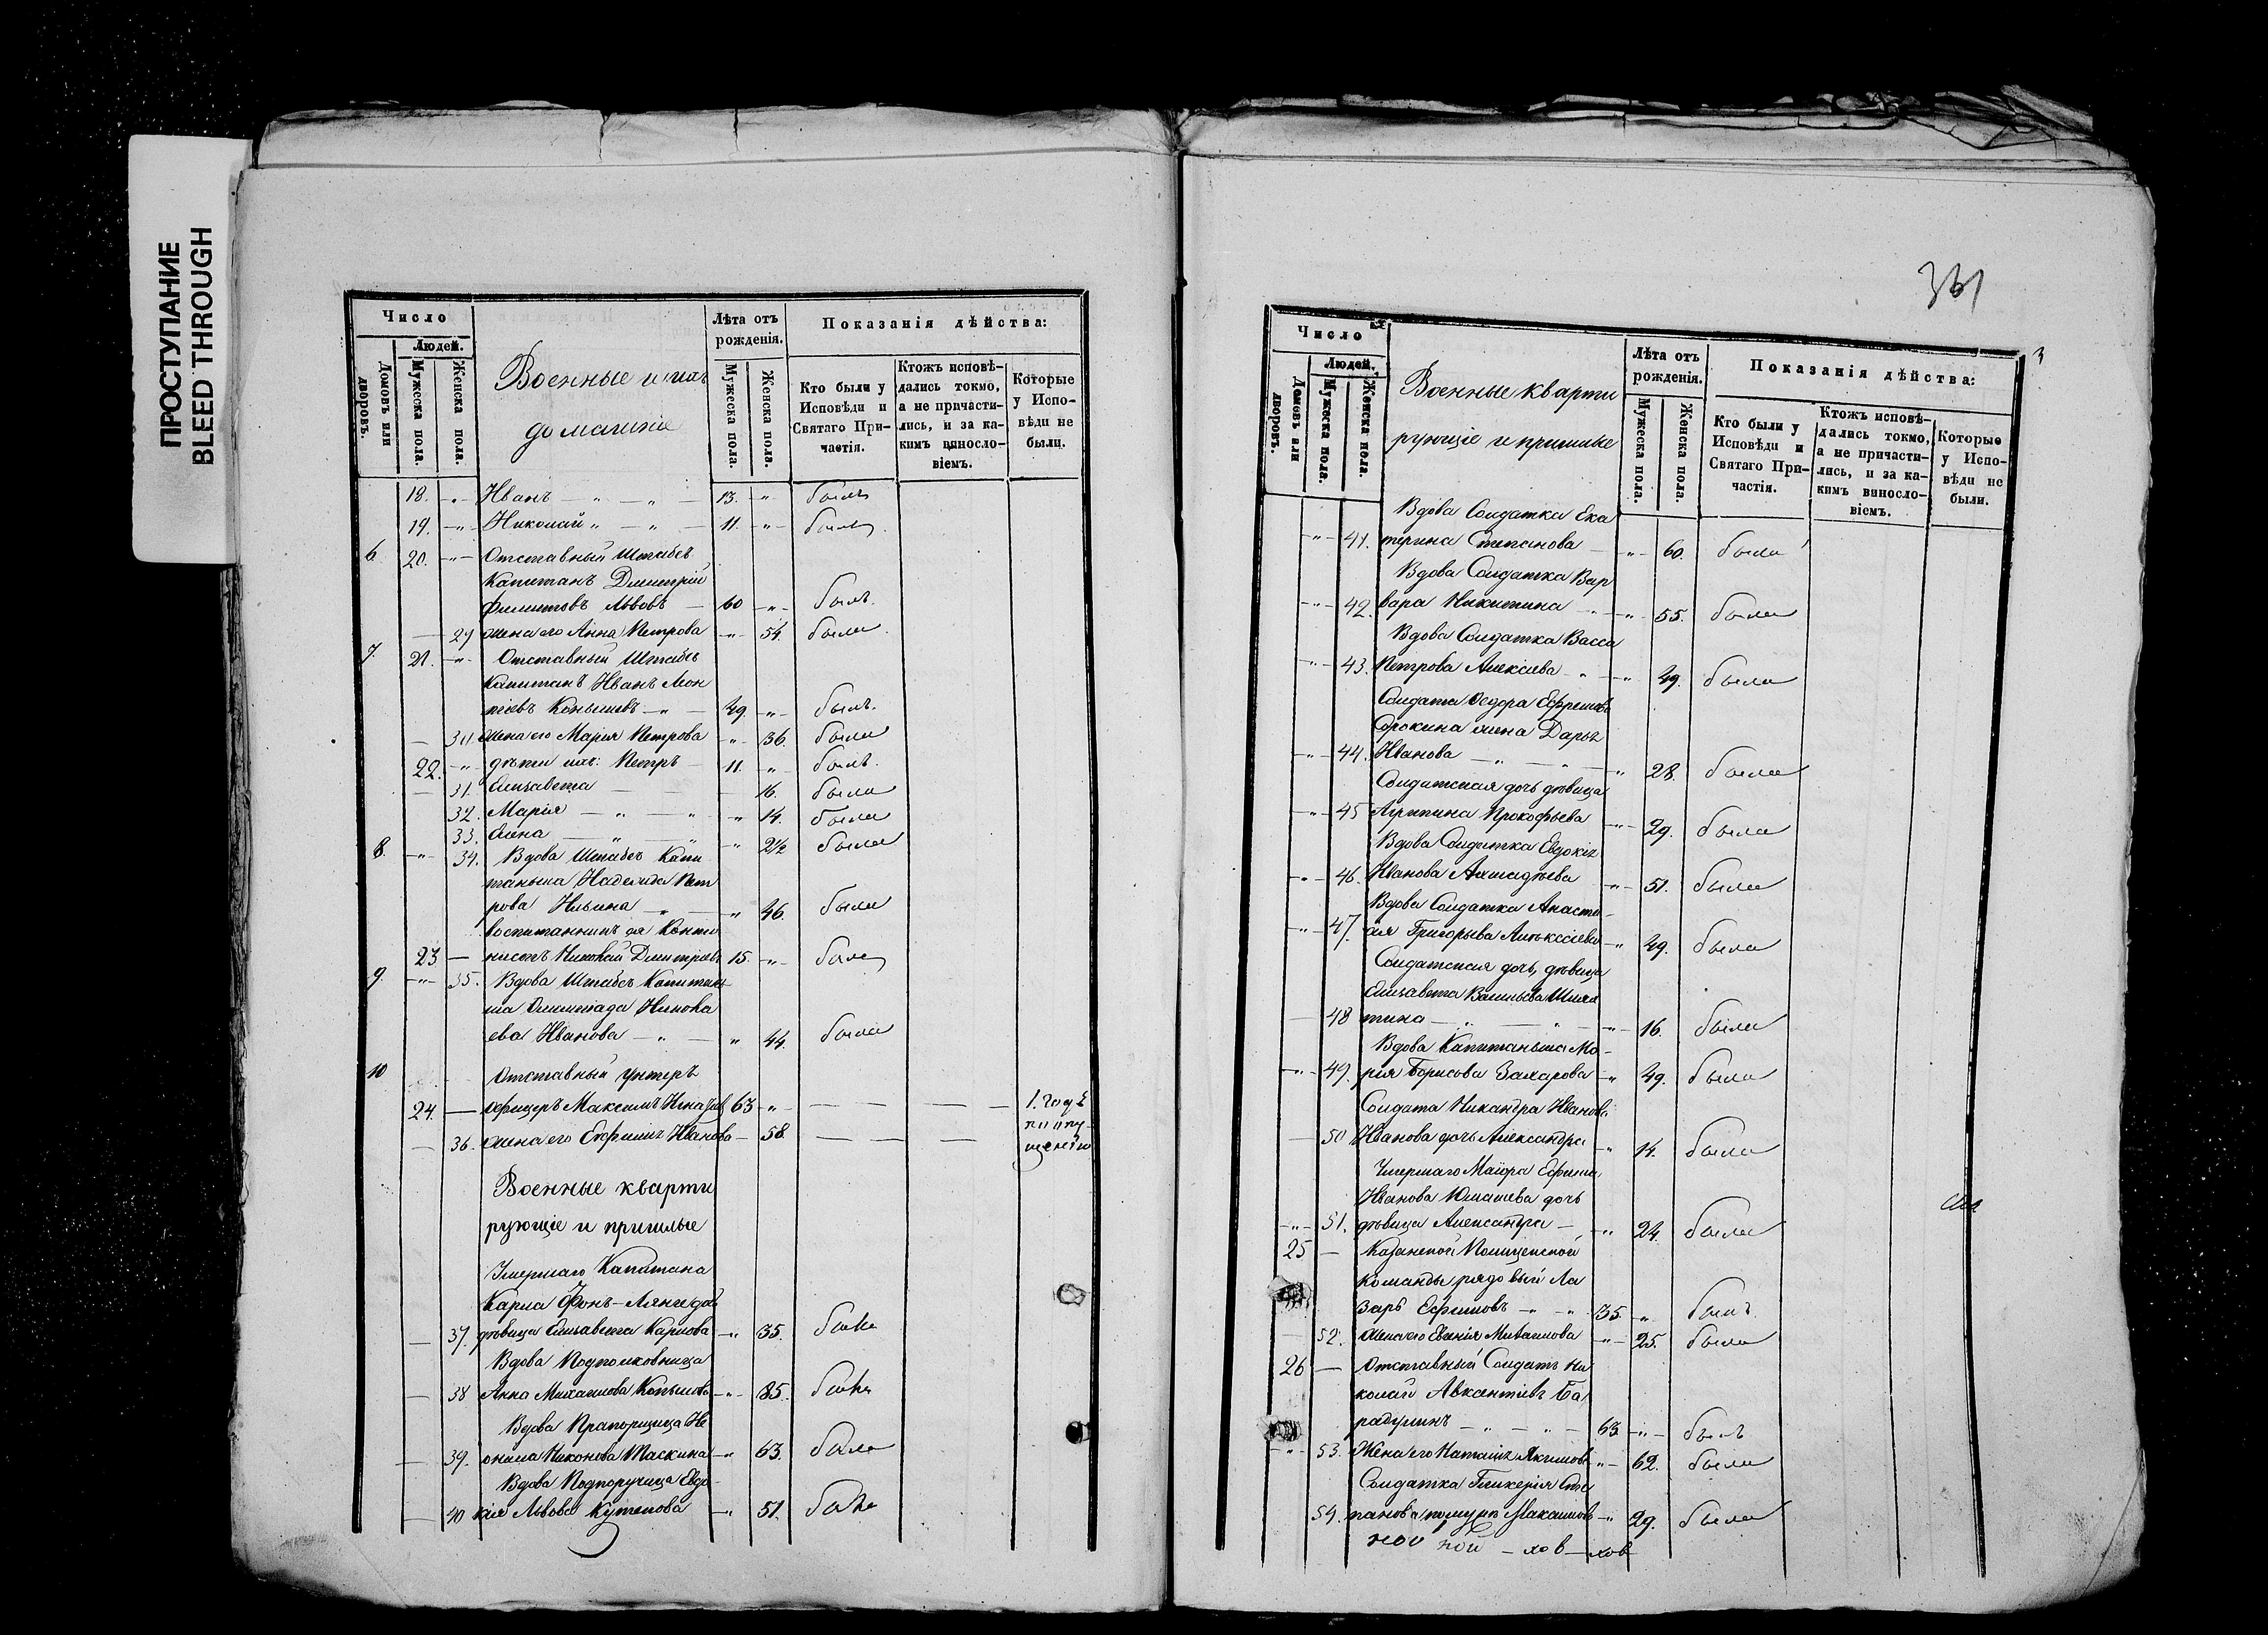 ПРОСТУПАНИЕ
BLEED THROUGH
Число
Людей.
Домовъ или дворовъ.
Мужеска пола.
Женска пола.
Военные и ихъ
домашніе
Лѣта отъ рожденія.
Мужеска пола.
Женска пола.
Показанія дѣйства:
Кто были у Исповѣди и Святаго Причастія.
Ктожъ исповѣдались токмо, а не причастились, и за какимъ винословіемъ.
Которые у Исповѣди не были.
18. Иванъ 13. былъ
19. Николай 11. былъ
6. 20. Отставный Штабсъ
Капитанъ Дмитрій
Филиповъ Львовъ 60 былъ.
29 жена его Анна Петрова 54. была.
7. 21. Отставный Штабсъ
Капитанъ Иванъ Леон
тіевъ Конышевъ 49. былъ.
30 жена его Марья Петрова 36. была
22. дѣти ихъ: Петръ 11. былъ.
31. Елизавета 16. была
32. Марія 14. была
33. Анна 2½ была
8. 34. Вдова Штабсъ Капи
танша Надежда Пет
рова Ильина 46. была
воспитанникъ ея Канто
23. нистъ Николай Дмитріевъ 15. былъ
9. 35. Вдова Штабсъ Капитан
ша Олимпіада Никола
ева Иванова 44. была
10 Отставный унтеръ
24. офицеръ Максимъ Игнатьевъ 63 1. годъ
36. жена его Евфимія Иванова 58. по опу
щенію
Военные кварти
рующіе и пришлые
Умершаго Капитана
Карла Фонъ-
37. дѣвица Елизавета Карлова 35. была
Вдова Подполковница
38 Анна Михайлова Копылова 85. была
Вдова Прапорщица Не
39. онила Никонова Таскина 63. была
Вдова Подпоручица Евдо-
40 кія Львова Кутепова 51. была
331
3
Число
Людей.
Домовъ или дворовъ.
Мужеска пола.
Женска пола.
Военные кварти
рующіе и пришлые
Лѣта отъ рожденія.
Мужеска пола.
Женска пола.
Показанія дѣйства:
Кто были у Исповѣди и Святаго Причастія.
Ктожъ исповѣдались токмо, а не причастились, и за какимъ винословіемъ.
Которые у Исповѣди не были.
Вдова Солдатка Ека
41. терина Степанова 60. была
Вдова Солдатка Вар
42. вара Никитина 55. была
Вдова Солдатка Васса
43. Петрова Алексіева 49. была
Солдата Ѳедора Ефремова
Сорокина жена Дарья
44. Иванова 28. была
Солдатская дочь дѣвица
45 Агрипина Прокофьева 29. была
Вдова Солдатка Евдокія
46. Иванова 51. была
Вдова Солдатка Анаста-
47. сія Григорьева Алексіева 49. была
Солдатская дочь, дѣвица
Елизавета Васильева
48 16. была
Вдова Капитанша Ма-
49. рія Борисова Захарова 49. была
Солдата Никандра Иванова
50 Иванова дочь Александра 14. была
Умершаго Маіора Ефима
Иванова Юматева дочь
51. дѣвица Александра 24. была
25 Казанской Полицейской
команды рядовый Ла
зарь Ефимовъ 35. былъ
52. жена его Евгенія Михаилова 25. была
26 Отставный Солдатъ Ни
колай Авксентіевъ Ба
радулинъ 63 былъ
53. Жена его Наталія Якимова 62. была
Солдатка Гликерія Сте
54. панова по мужѣ Максимова 29. была